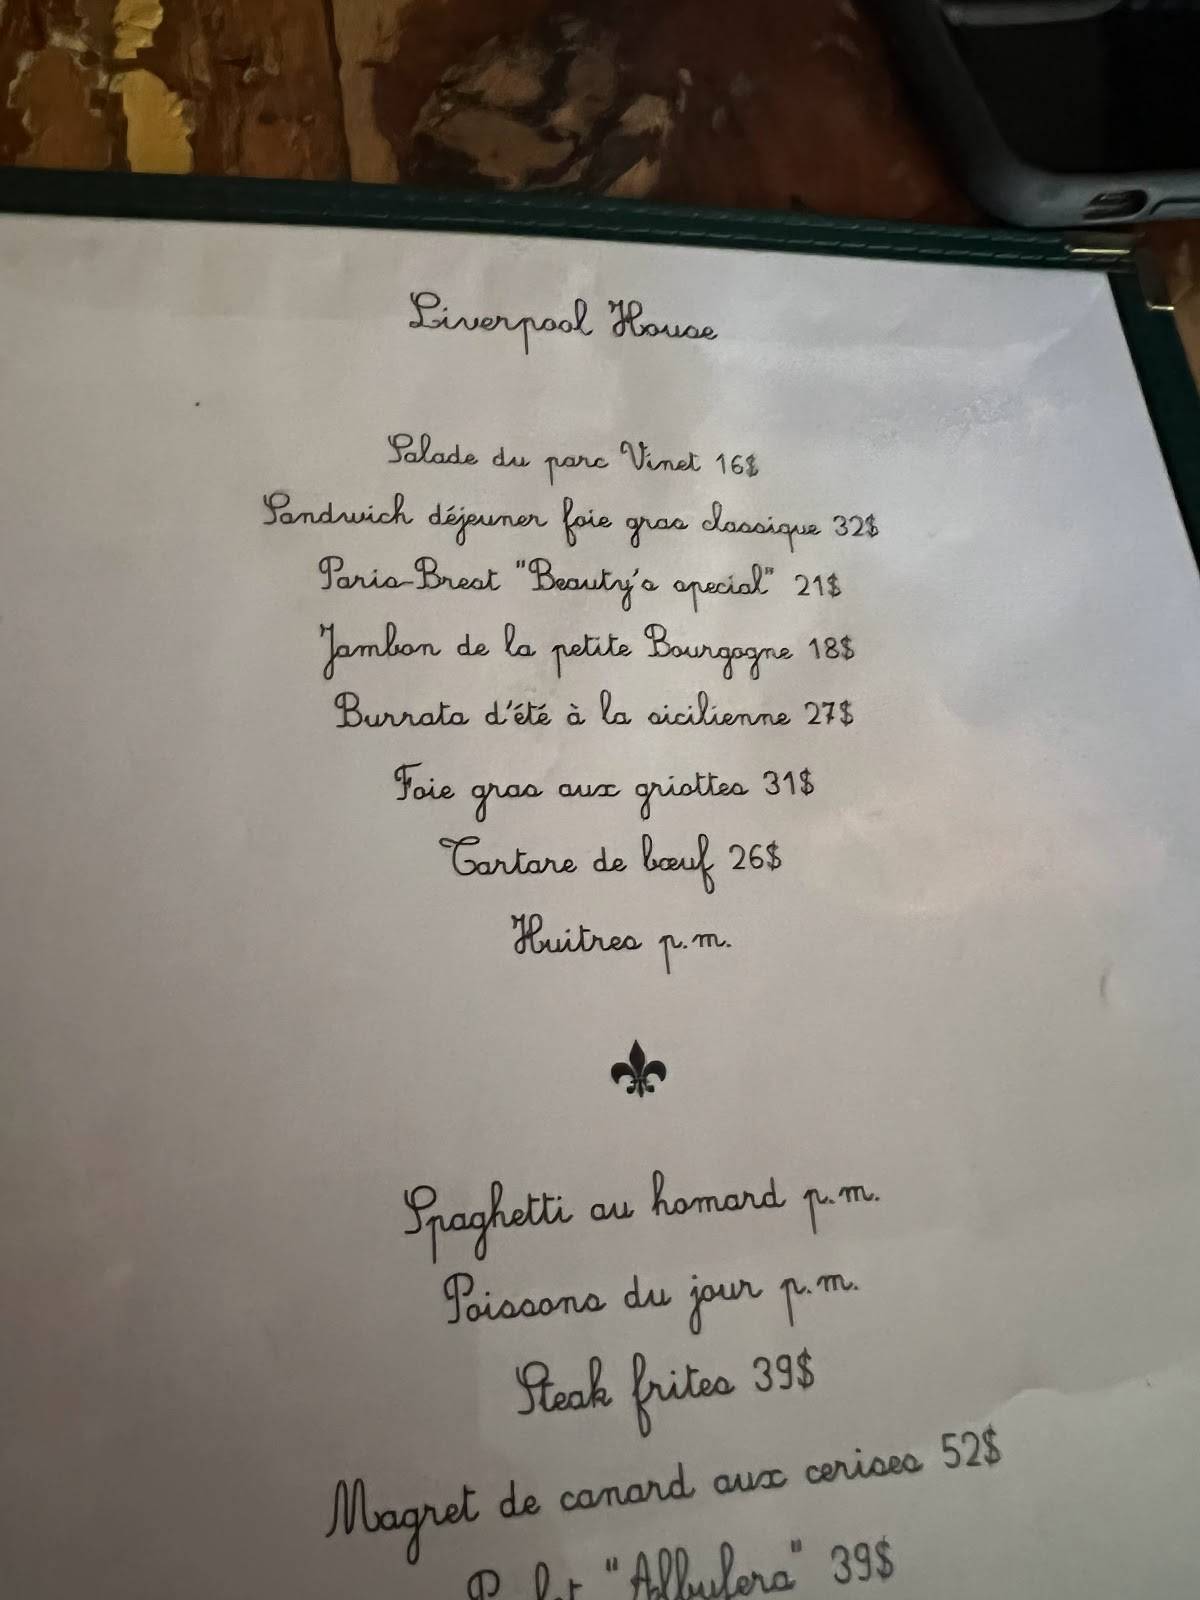 Liverpool House
Salade du parc Vinet 16$
Sandwich déjeuner foie gras classique 32$
Paris-Brest "Beauty's special" 21$
Jambon de la petite Bourgogne 18$
Burrata d'été à la sicilienne 27$
Foie gras aux griottes 31$
Tartare de bœuf 26$
Huitres p.m.
Spaghetti au homard p.m.
Poissons du jour p.m.
Steak frites 39$
Magret de canard aux cerises 52$
"Albufera" 39$